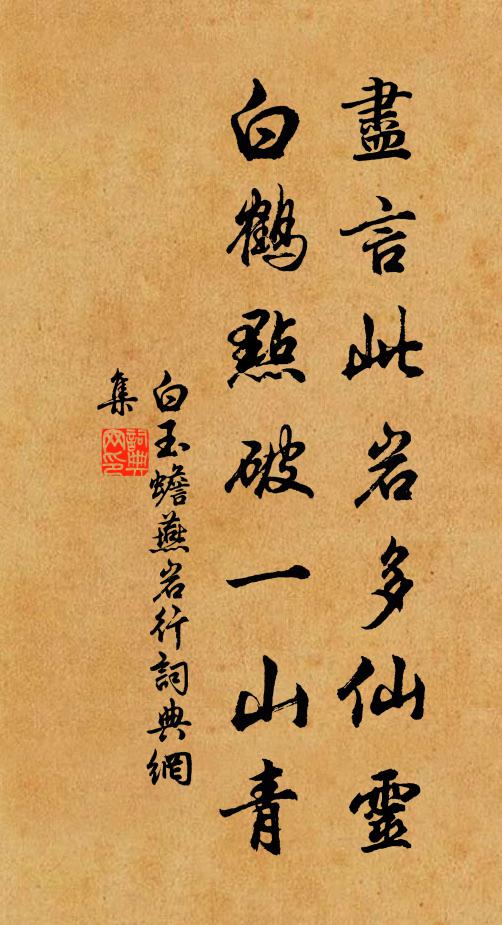 盡言此岩多仙靈
白鶴點破一山青
白玉蟾燕岩行詞典網
集
詞典
网印